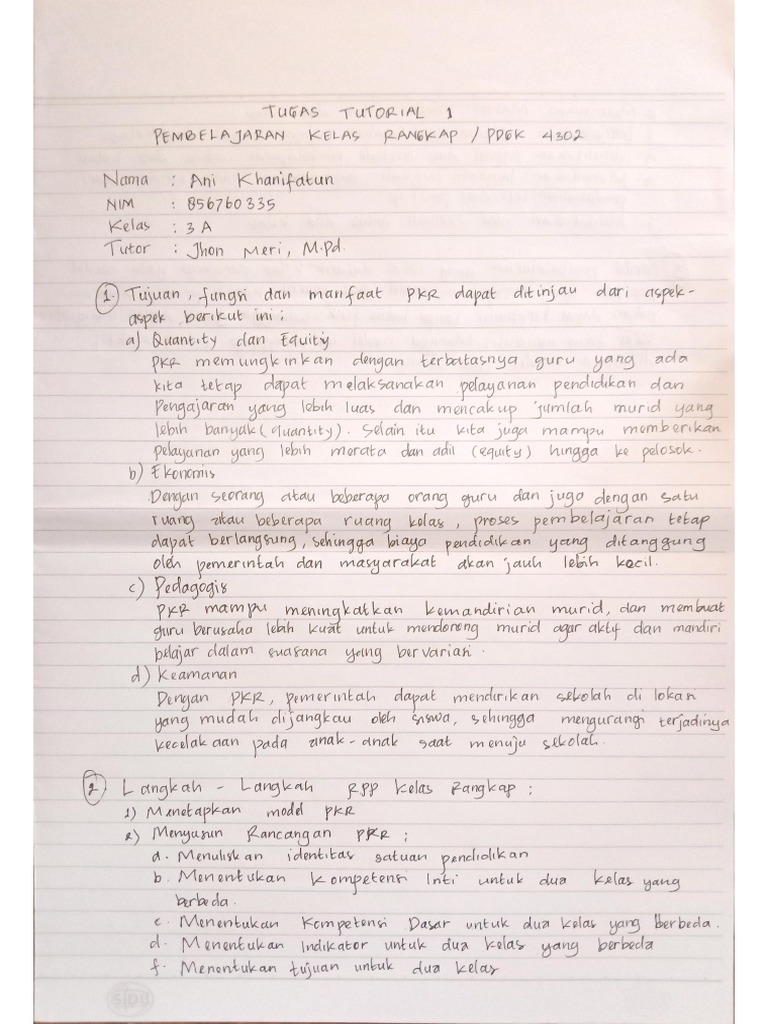 TUGAS TUTORIAL 1
PEMBELAJARAN KELAS RANGKAP / PDGK 4302
Nama : Ani Khanifatun
NIM : 856760335
Kelas : 3 A
Tutor : Jhon Meri, M.Pd.
1. Tujuan, fungsi dan manfaat PKR dapat ditinjau dari aspek-
aspek berikut ini :
a) Quantity dan Equity
PKR memungkinkan dengan terbatasnya guru yang ada
kita tetap dapat melaksanakan pelayanan pendidikan dan
Pengajaran yang lebih luas dan mencakup jumlah murid yang
lebih banyak (quantity). Selain itu kita juga mampu memberikan
pelayanan yang lebih merata dan adil (equity) hingga ke pelosok.
b) Ekonomis
Dengan seorang atau beberapa orang guru dan juga dengan satu
ruang atau beberapa ruang kelas, proses pembelajaran tetap
dapat berlangsung, sehingga biaya pendidikan yang ditanggung
oleh pemerintah dan masyarakat akan jauh lebih kecil.
c) Pedagogis
PKR mampu meningkatkan kemandirian murid, dan membuat
guru berusaha lebih kuat untuk mendorong murid agar aktif dan mandiri
belajar dalam suasana yang bervariasi.
d) Keamanan
Dengan PKR, pemerintah dapat mendirikan sekolah di lokasi
yang mudah dijangkau oleh siswa, sehingga mengurangi terjadinya
kecelakaan pada anak-anak saat menuju sekolah.
2. Langkah - Langkah RPP Kelas Rangkap :
1) Menetapkan model PKR
2) Menyusun Rancangan PKR :
a. Menuliskan identitas satuan pendidikan
b. Menentukan Kompetensi Inti untuk dua kelas yang
berbeda.
c. Menentukan Kompetensi Dasar untuk dua kelas yang berbeda.
d. Menentukan Indikator untuk dua kelas yang berbeda
f. Menentukan tujuan untuk dua kelas
SIDU